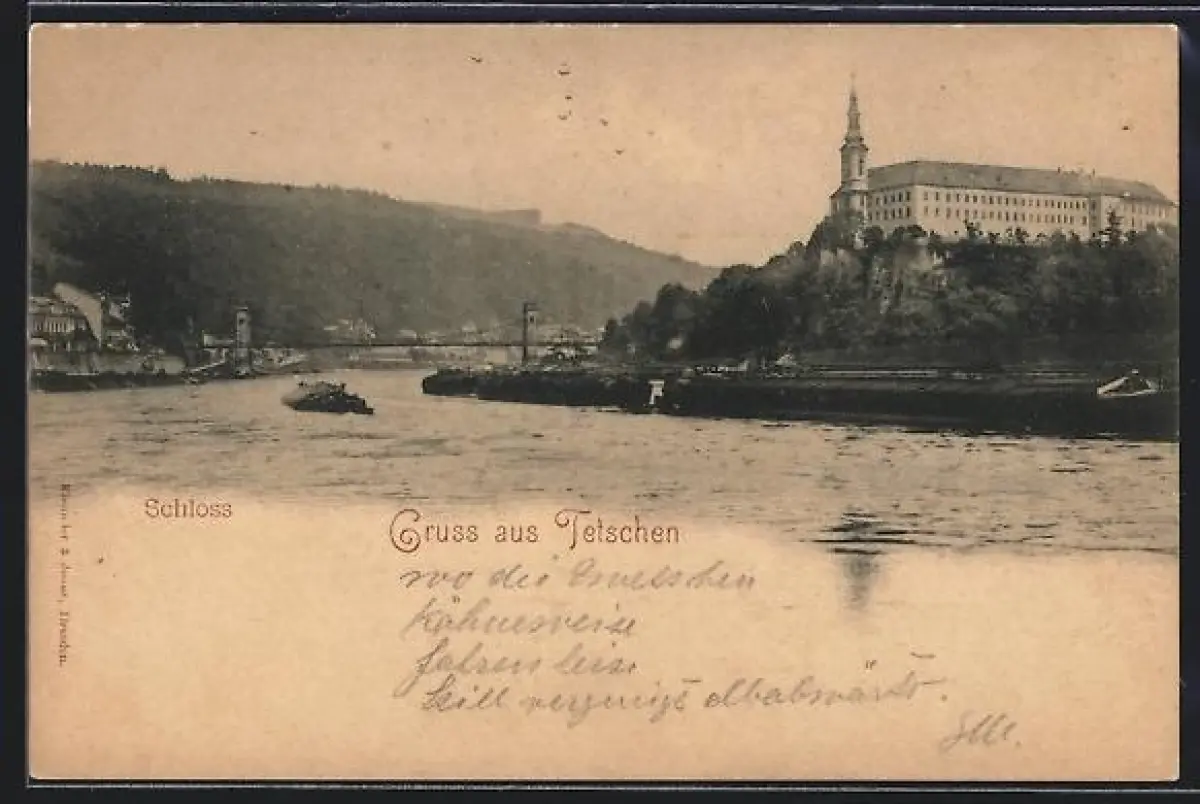 Schloss
Gruss aus Tetschen
wo die Zwetschen
Kähneweise
fahren leise
Still vergnügt Elbabwärts.
Dresden.